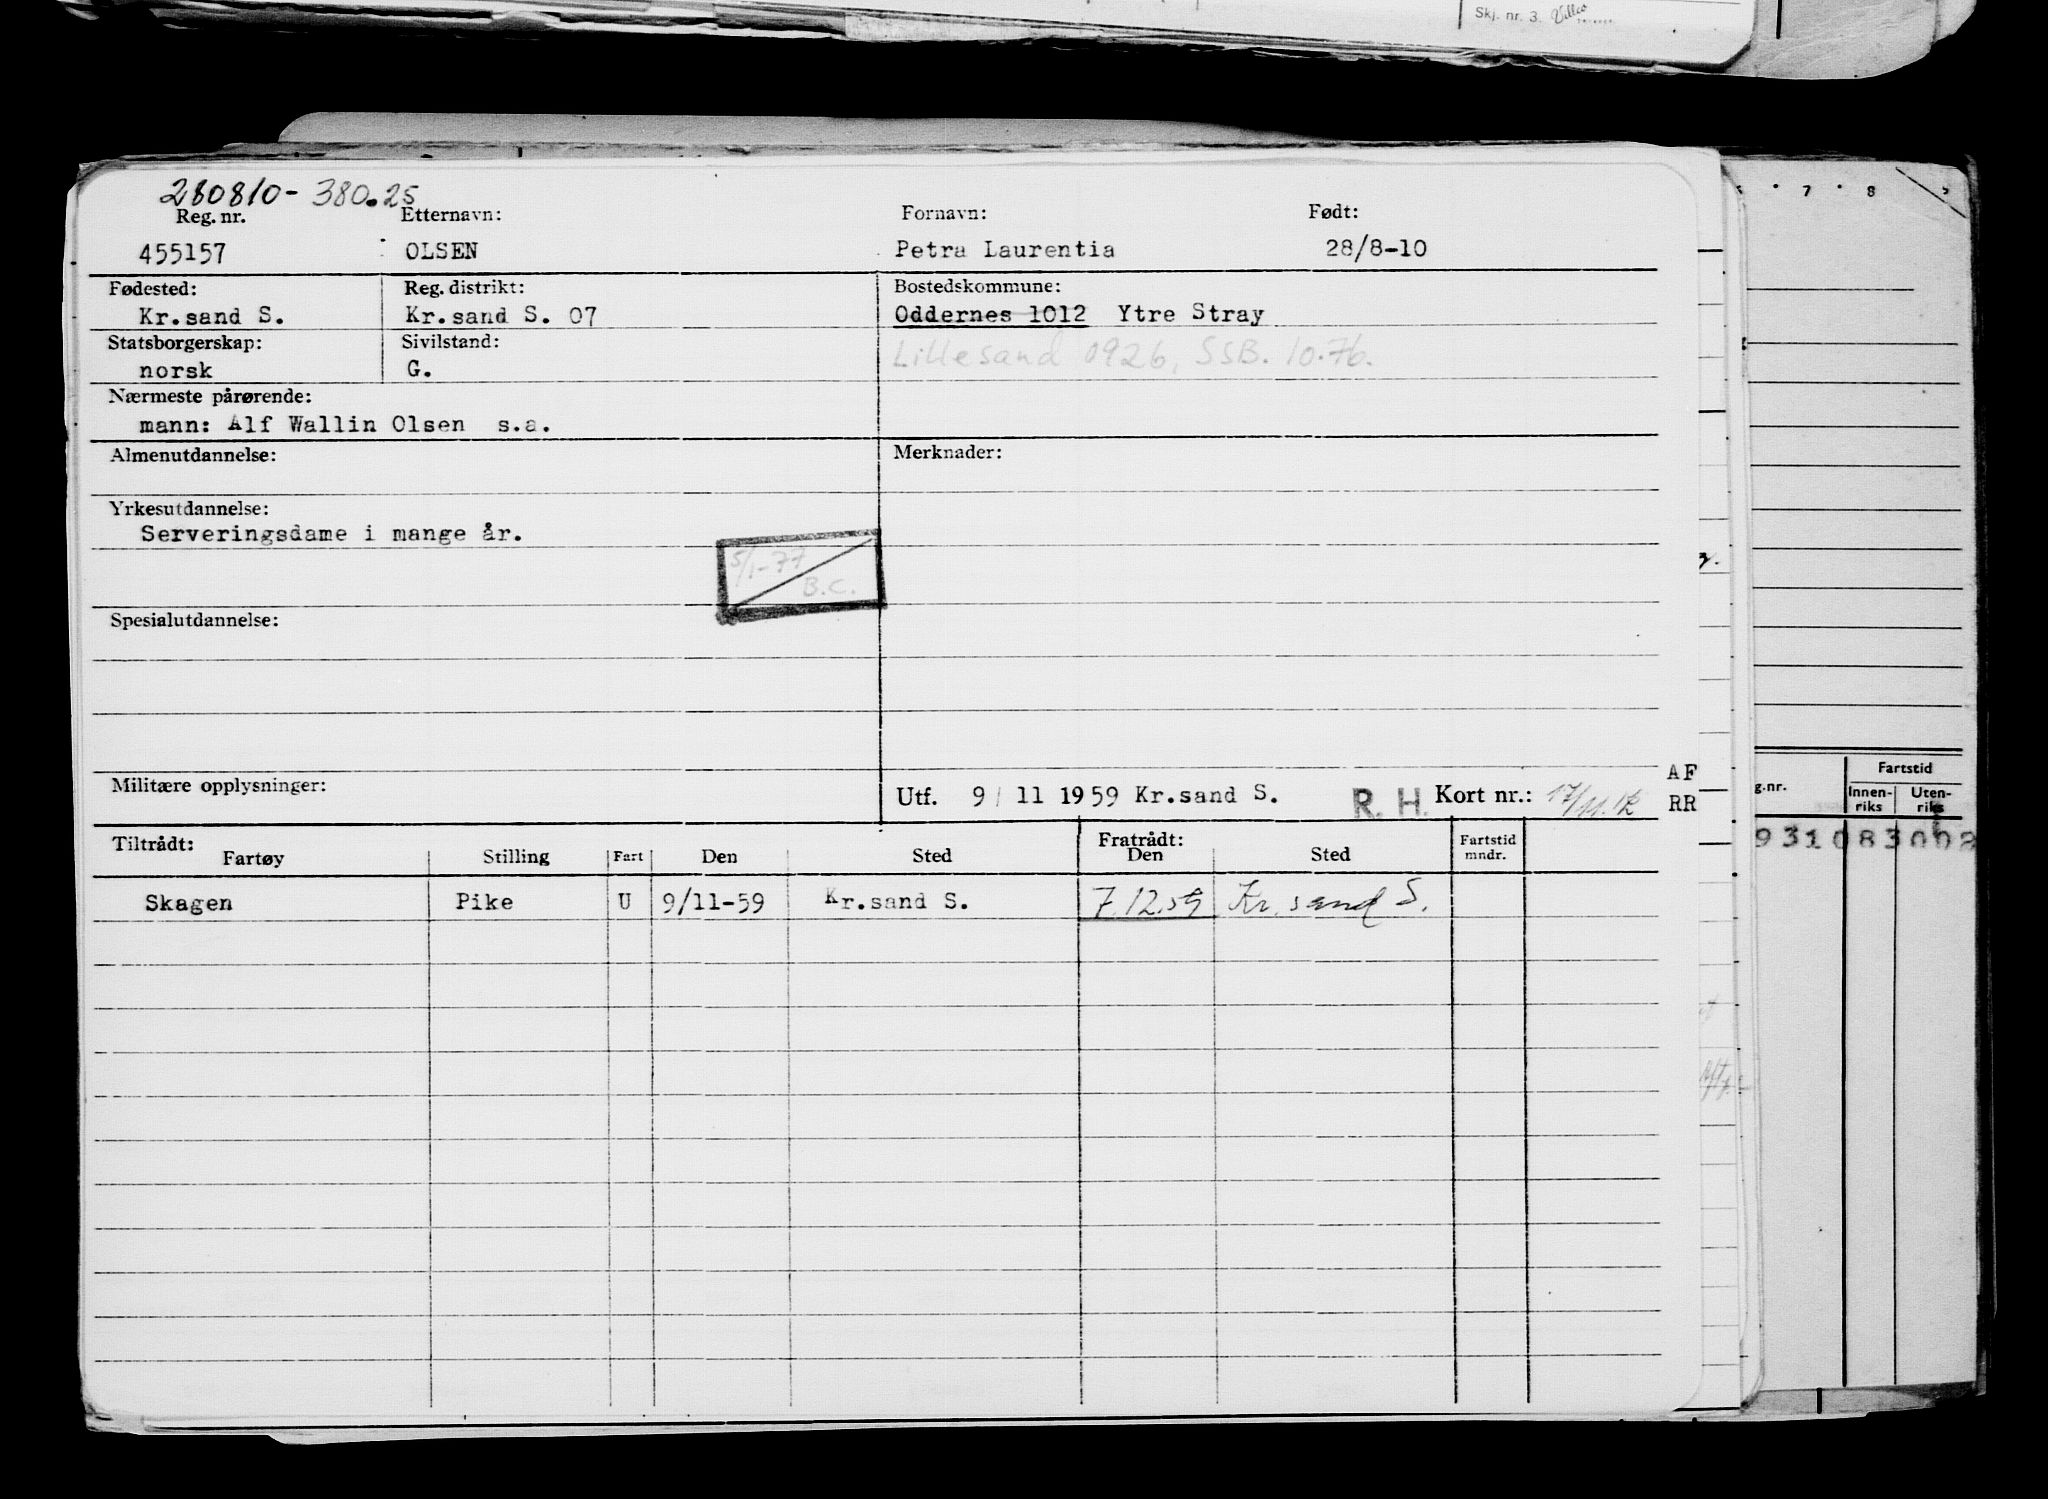 Skj. nr. 3.
280810-380.25
Reg. nr. Etternavn: Fornavn: Født:
455157 OLSEN Petra Laurentia 28/8-10
Fødested: Reg. distrikt: Bostedskommune:
Kr.sand S. Kr.sand S. 07 Oddernes 1012 Ytre Stray
Statsborgerskap: Sivilstand: Lillesand 0926, SSB. 10.76.
norsk G.
Nærmeste pårørende:
mann: Alf Wallin Olsen s.a.
Almenutdannelse: Merknader:
Yrkesutdannelse:
Serveringsdame i mange år.
5/1-77
B.C.
Spesialutdannelse:
Militære opplysninger: Utf. 9/ 11 1959 Kr.sand S. R. H. Kort nr.: 17/11.
AF
RR
Tiltrådt: Fratrådt:
Fartøy Stilling Fart Den Sted Den Sted Fartstid mndr.
Skagen Pike U 9/11-59 Kr.sand S. 7.12.59 Kr.sand S.
7 8
g.nr. Fartstid
Innen-riks Uten-riks